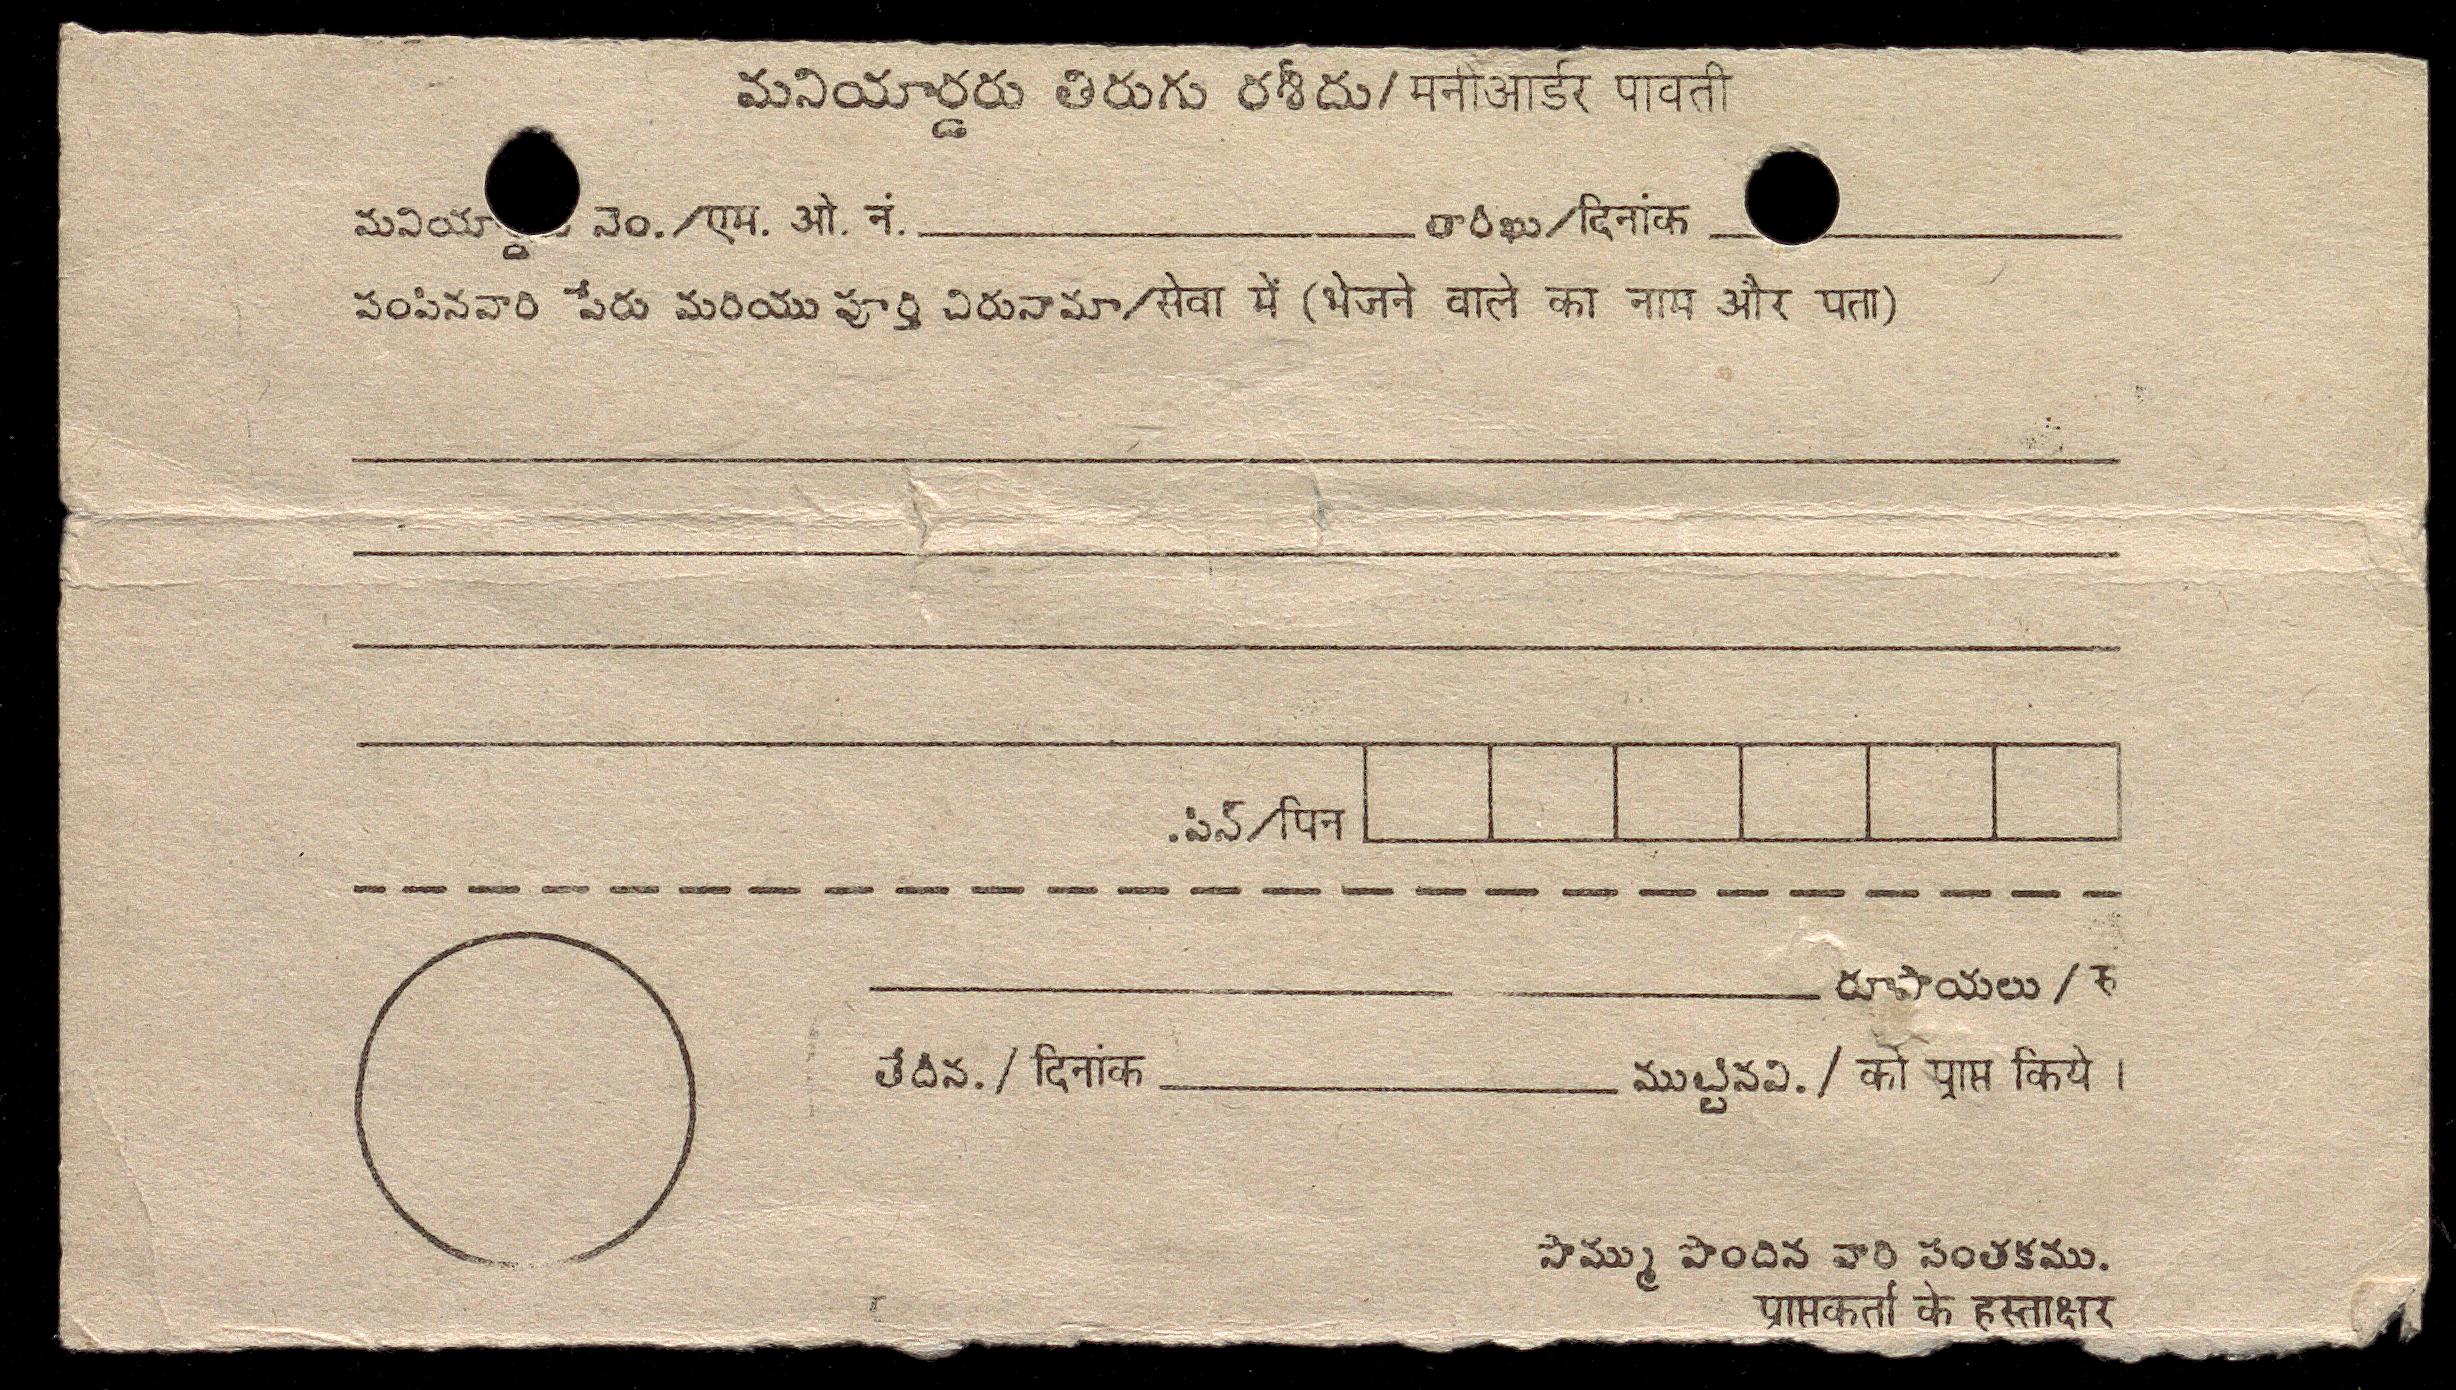 మనియార్డరు తిరుగు రశీదు/मनीआर्डर पावती
నెం./एम. ओ. नं. తారీఖు/दिनांक
పంపినవారి పేరు మరియు పూర్తి చిరునామా/सेवा में (भेजने वाले का नाम और पता)
పిన్/पिन
రూపాయలు / रु
తేదీన. / दिनांक ముట్టినవి. / को प्राप्त किये ।
సొమ్ము పొందిన వారి సంతకము.
प्राप्तकर्ता के हस्ताक्षर